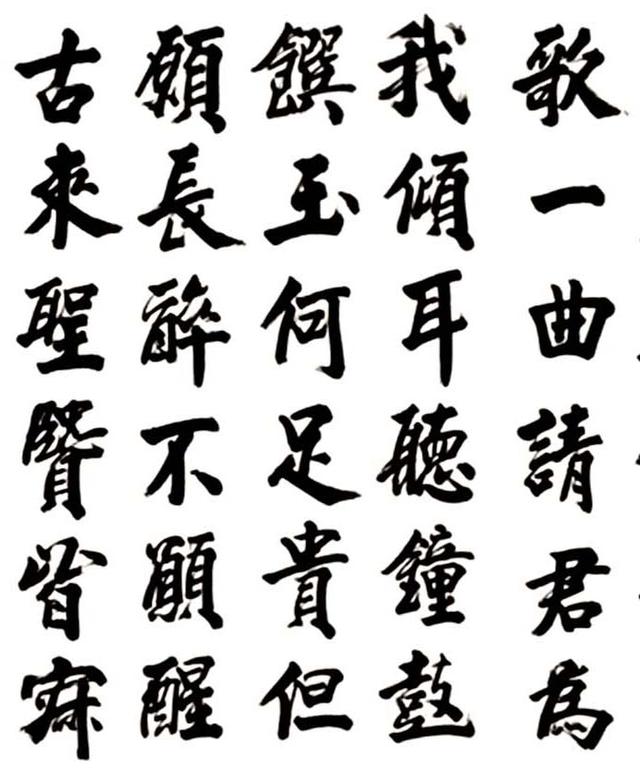 歌一曲請君為
我傾耳聽鐘鼓
饌玉何足貴但
願長醉不願醒
古來聖賢皆寂